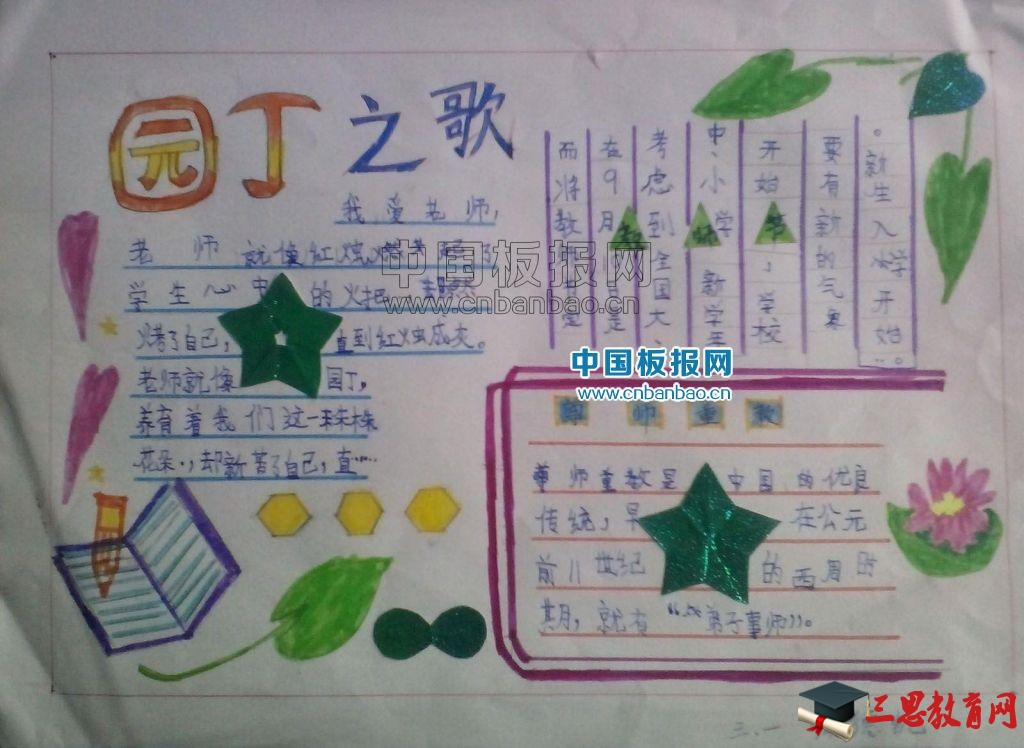 园丁之歌
我爱老师，
老师就像红烛燃
学生心中的火把
烤了自己，直到红烛成灰。
老师就像园丁，
养育着我们这一株株
花朵.，却新苦了自己，直……
新生入学开始。
要有新的气象
开始，学校
中、小学新学年
考虑到全国大、
在9月是
而将教
教师节
师重教
尊师重教是中国的优良
传统，早在公元
前11世纪的西周时
期，就有“弟子事师”。
中国板报网
www.cnbanbao.cn
中国板报网
www.cnbanbao.cn
三思教育网